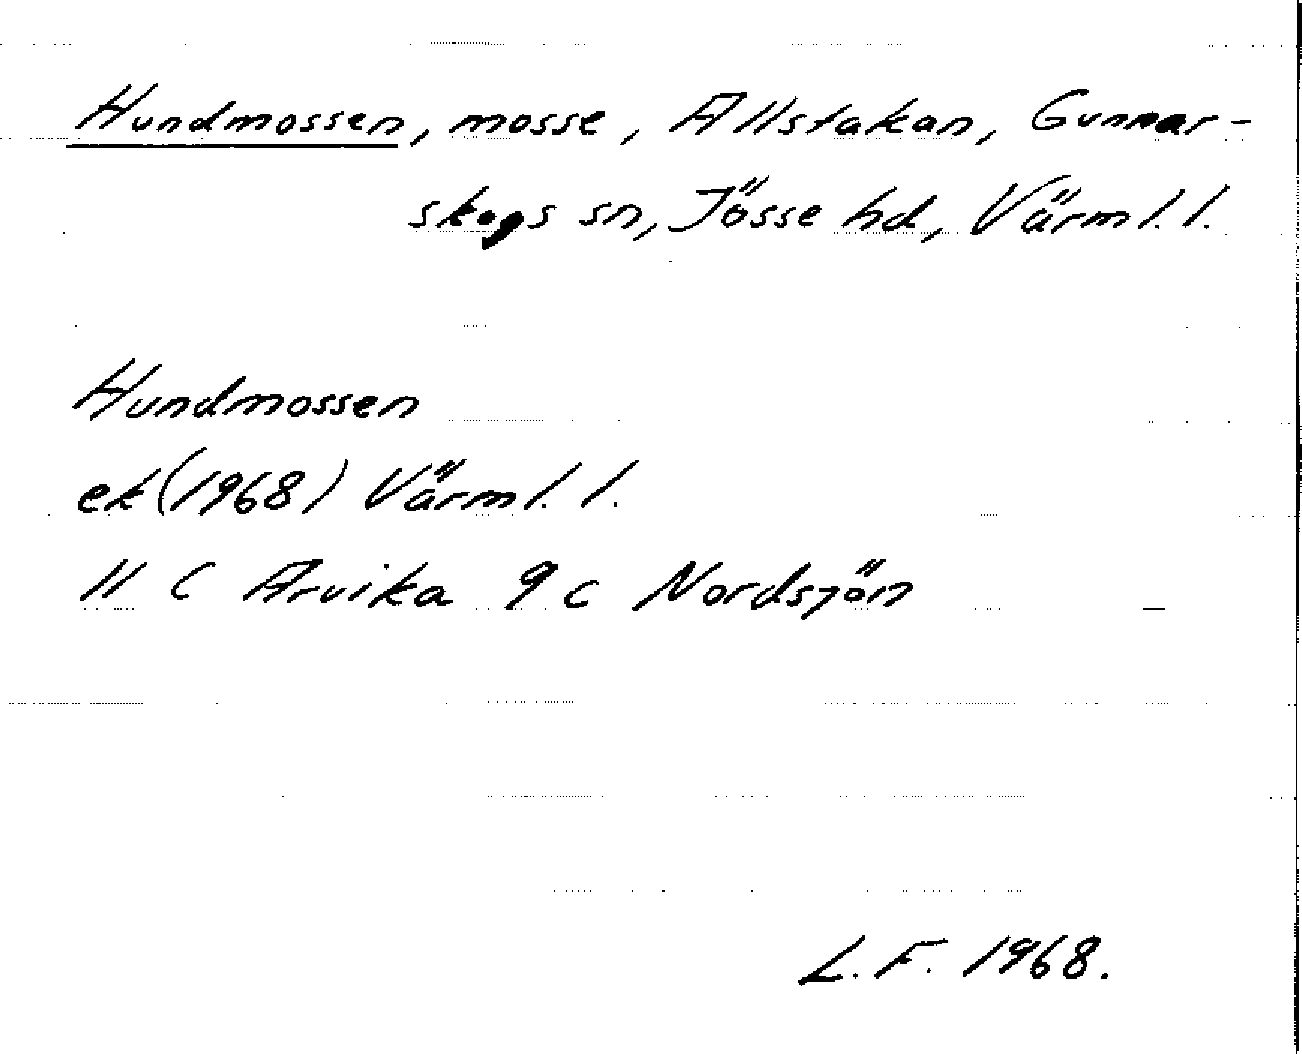 Hundmossen, mosse, Allstakan, Gunnar-
skogs sn, Jösse hd, Värml. l.
Hundmossen
ek (1968) Värml. l.
11 C Arvika 9 c Nordsjön
L. F. 1968.